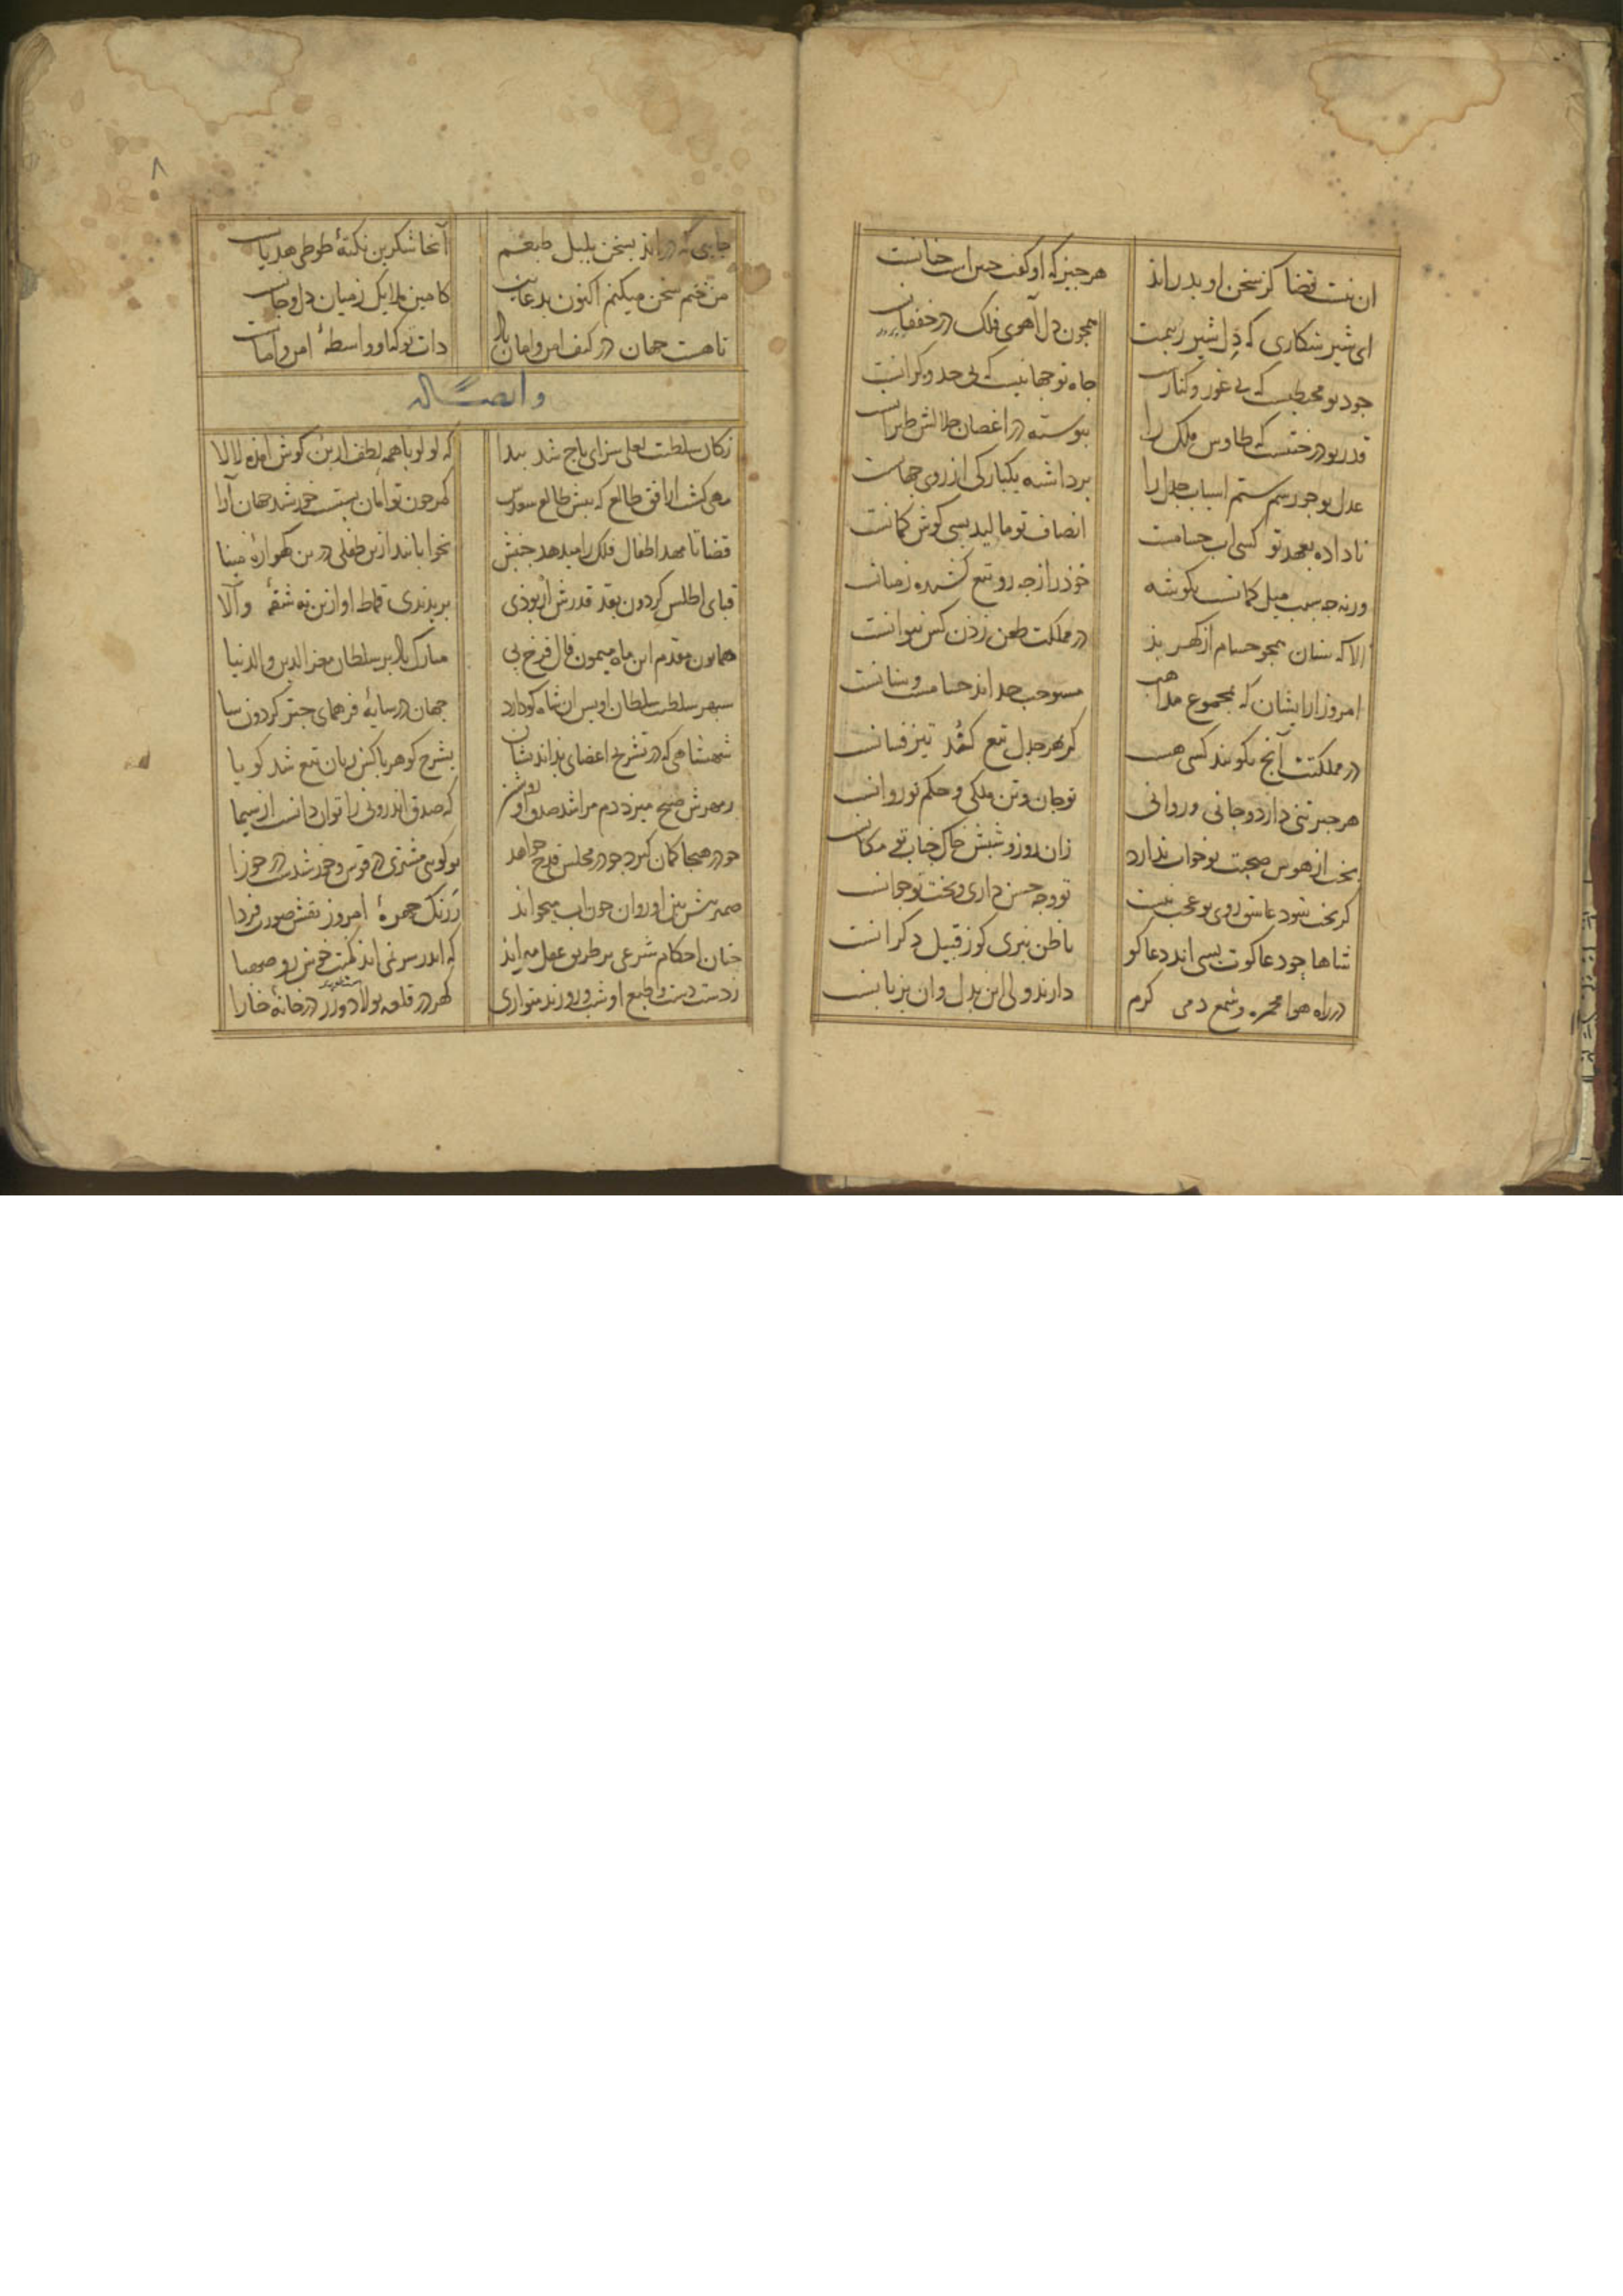 ان نیست قضا کز سخن او بدراند هر جیز که او کفت جنین است جنانست
ای شیر شکاری که دل شیر زبیمت همچون دل آهوی فلک در خفقانست
جود تو محیطیست که بی غور و کنارست جاه تو جهانیست که بی حد و کرانست
قدر تو درختیست که طاوس ملک را بیوسته در اغصان جلالش طیرانست
عدل تو جو رسم ستم اسباب جدل را برداشته یکبارکی از روی جهانست
ناداده بعهد تو کسی اب حسامت انصاف تو مالید بسی کوش کمانست
ورنه جه سبب میل کمانست بکوشه خوذ را ز جه رو تیغ کشیده زمیانست
الا که سنان همجو حسام از کهر بذ در مملکت طعن زذن کس نتوانست
امروز از ایشان که بمجموع مذاهب مستوجب حد اند حسامست و سنانست
در مملکتت آنج بکویند کسی هست کز بهر جدل تیغ کند تیز فسانست
هر جیز تنی دارد و جانی و روانی تو جان و تن ملکی و حکم تو روانست
بخت از هوس صحبت تو خواب ندارد زان روز و شبش خاک جناب تو مکانست
کر بخت شود عاشق روی تو عجب نیست تو وجه حسن داری و بخت تو جوانست
شاها جو دعا کوت بسی اند دعا کو تا ظن نبری کو ز قبیل دکرانست
در راه هوا مجمره و شمع دمی کرم دارند ولی این بدل و ان بزبانست
۸
جایی که دراید بسخن بلبل طبعم آنجا شکرین نکته طوطی هذیانست
من ختم سخن میکنم اکنون بدعایت کامین ملایک زمیان دل و جانست
تا هست جهان در کنف امن و امان باد ذات تو کی او واسطه امن و امانست
و ایضــا له
زکان سلطنت لعلی سزای تاج شد بیدا که لولو با همه لطف از بن کوش امذه لالا
مهی کشت از افق طالع که بیش طالع سعدش کمر جون توامان بستست خورشید جهان آرا
قضا تا مهد اطفال فلک را میدهد جنبش نخوابانید ازین طفلی درین کهواره مینا
قبای اطلس کردون بقد قدرش ار بوذی بریدندی قماط او ازین نه شقه والا
همایون مقدم این ماه میمون فال فرخ بی مبارک باد بر سلطان معز الدین و الدنیا
سبهر سلطنت سلطان اویس ان شاه کو دارد جهان در سایه فر همای جتر کردون سا
شهنشاهی که در تشریح اعضای بداندیشان بشرح کوهر باکش زبان تیغ شد کویا
ز مهرش صبح میزد دم مرا شد صدق او روشن که صدق اندرونی را توان دانست از سیما
جو در هیجا کمان کیرد جو در مجلس قدح خواهد تو کویی مشتری در قوس و خورشیدست در جوزا
ضمیر بیش بین او روان جون اب میخواند ز رنک جهره امروز نقش صورت فردا
جنان احکام شرعی بر طریق عقل میراند که اندر سر نمی اند کمیت خوش رو صهبا
ز دست دست و طبع او شب و روزند متواری کهر در قلعه بولاد و زر در خانه خارا